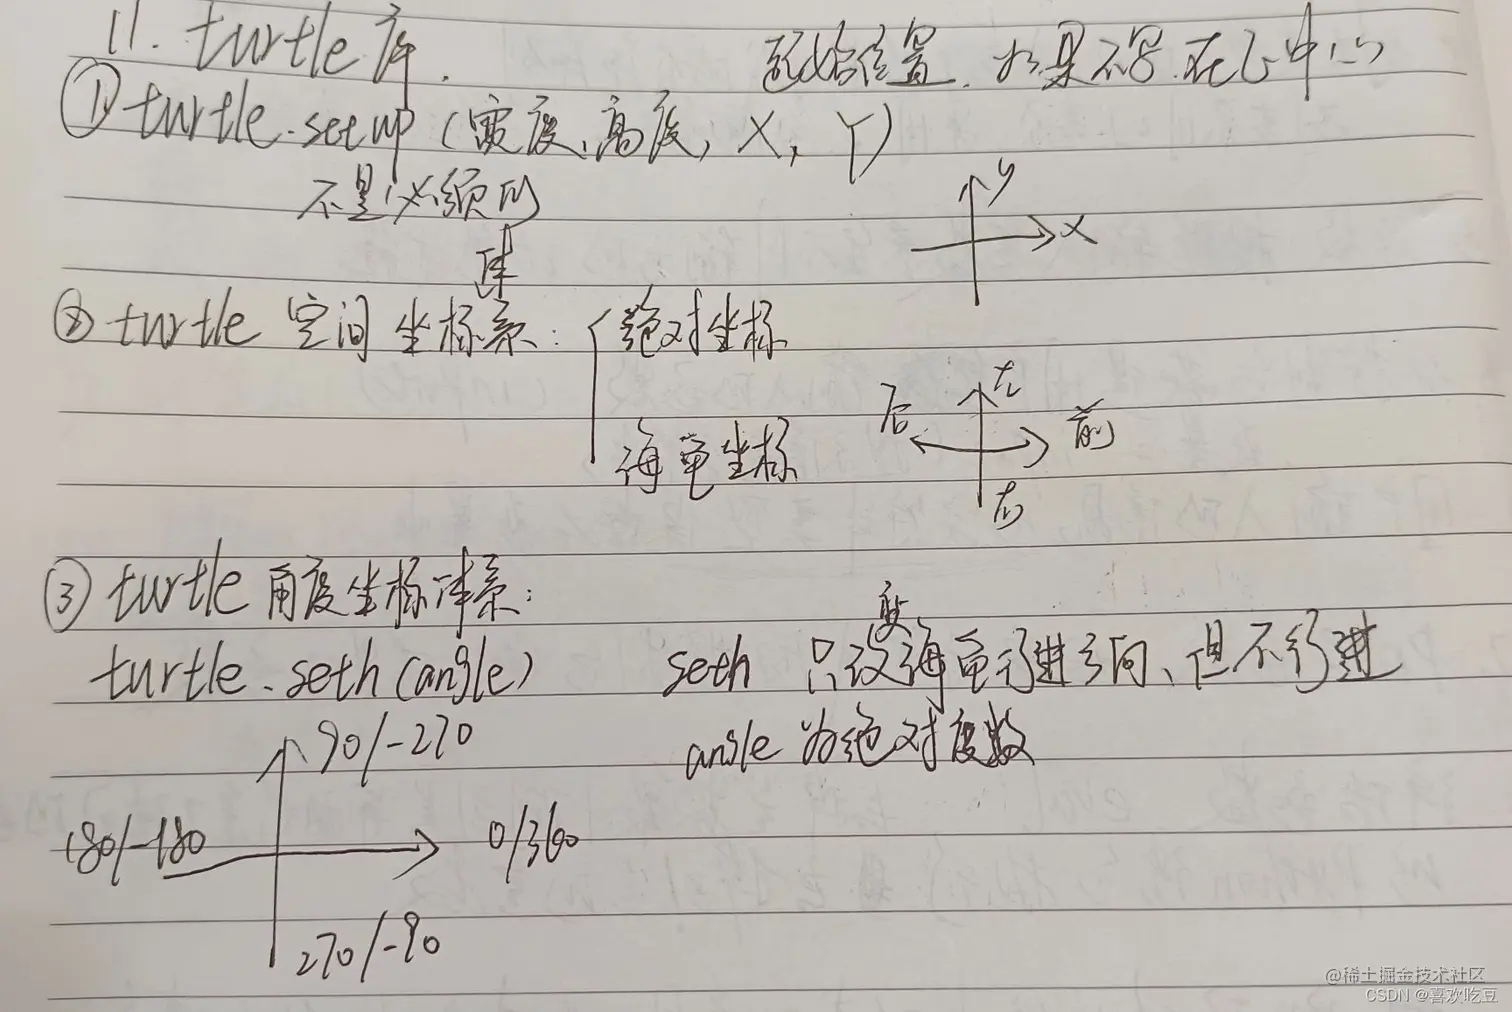 11. turtle库.
起始位置. 如果不写.在正中心
① turtle.setup (宽度、高度, X, Y)
不是必须的
y
x
体
② turtle 空间 坐标系: 绝对坐标
左
后
前
海龟坐标
右
③ turtle 角度坐标体系:
变
turtle.seth(angle) seth 只改海龟行进方向、但不行进
90/-270 angle 为绝对度数
180/-180 0/360
270/-90
@稀土掘金技术社区
CSDN @喜欢吃豆